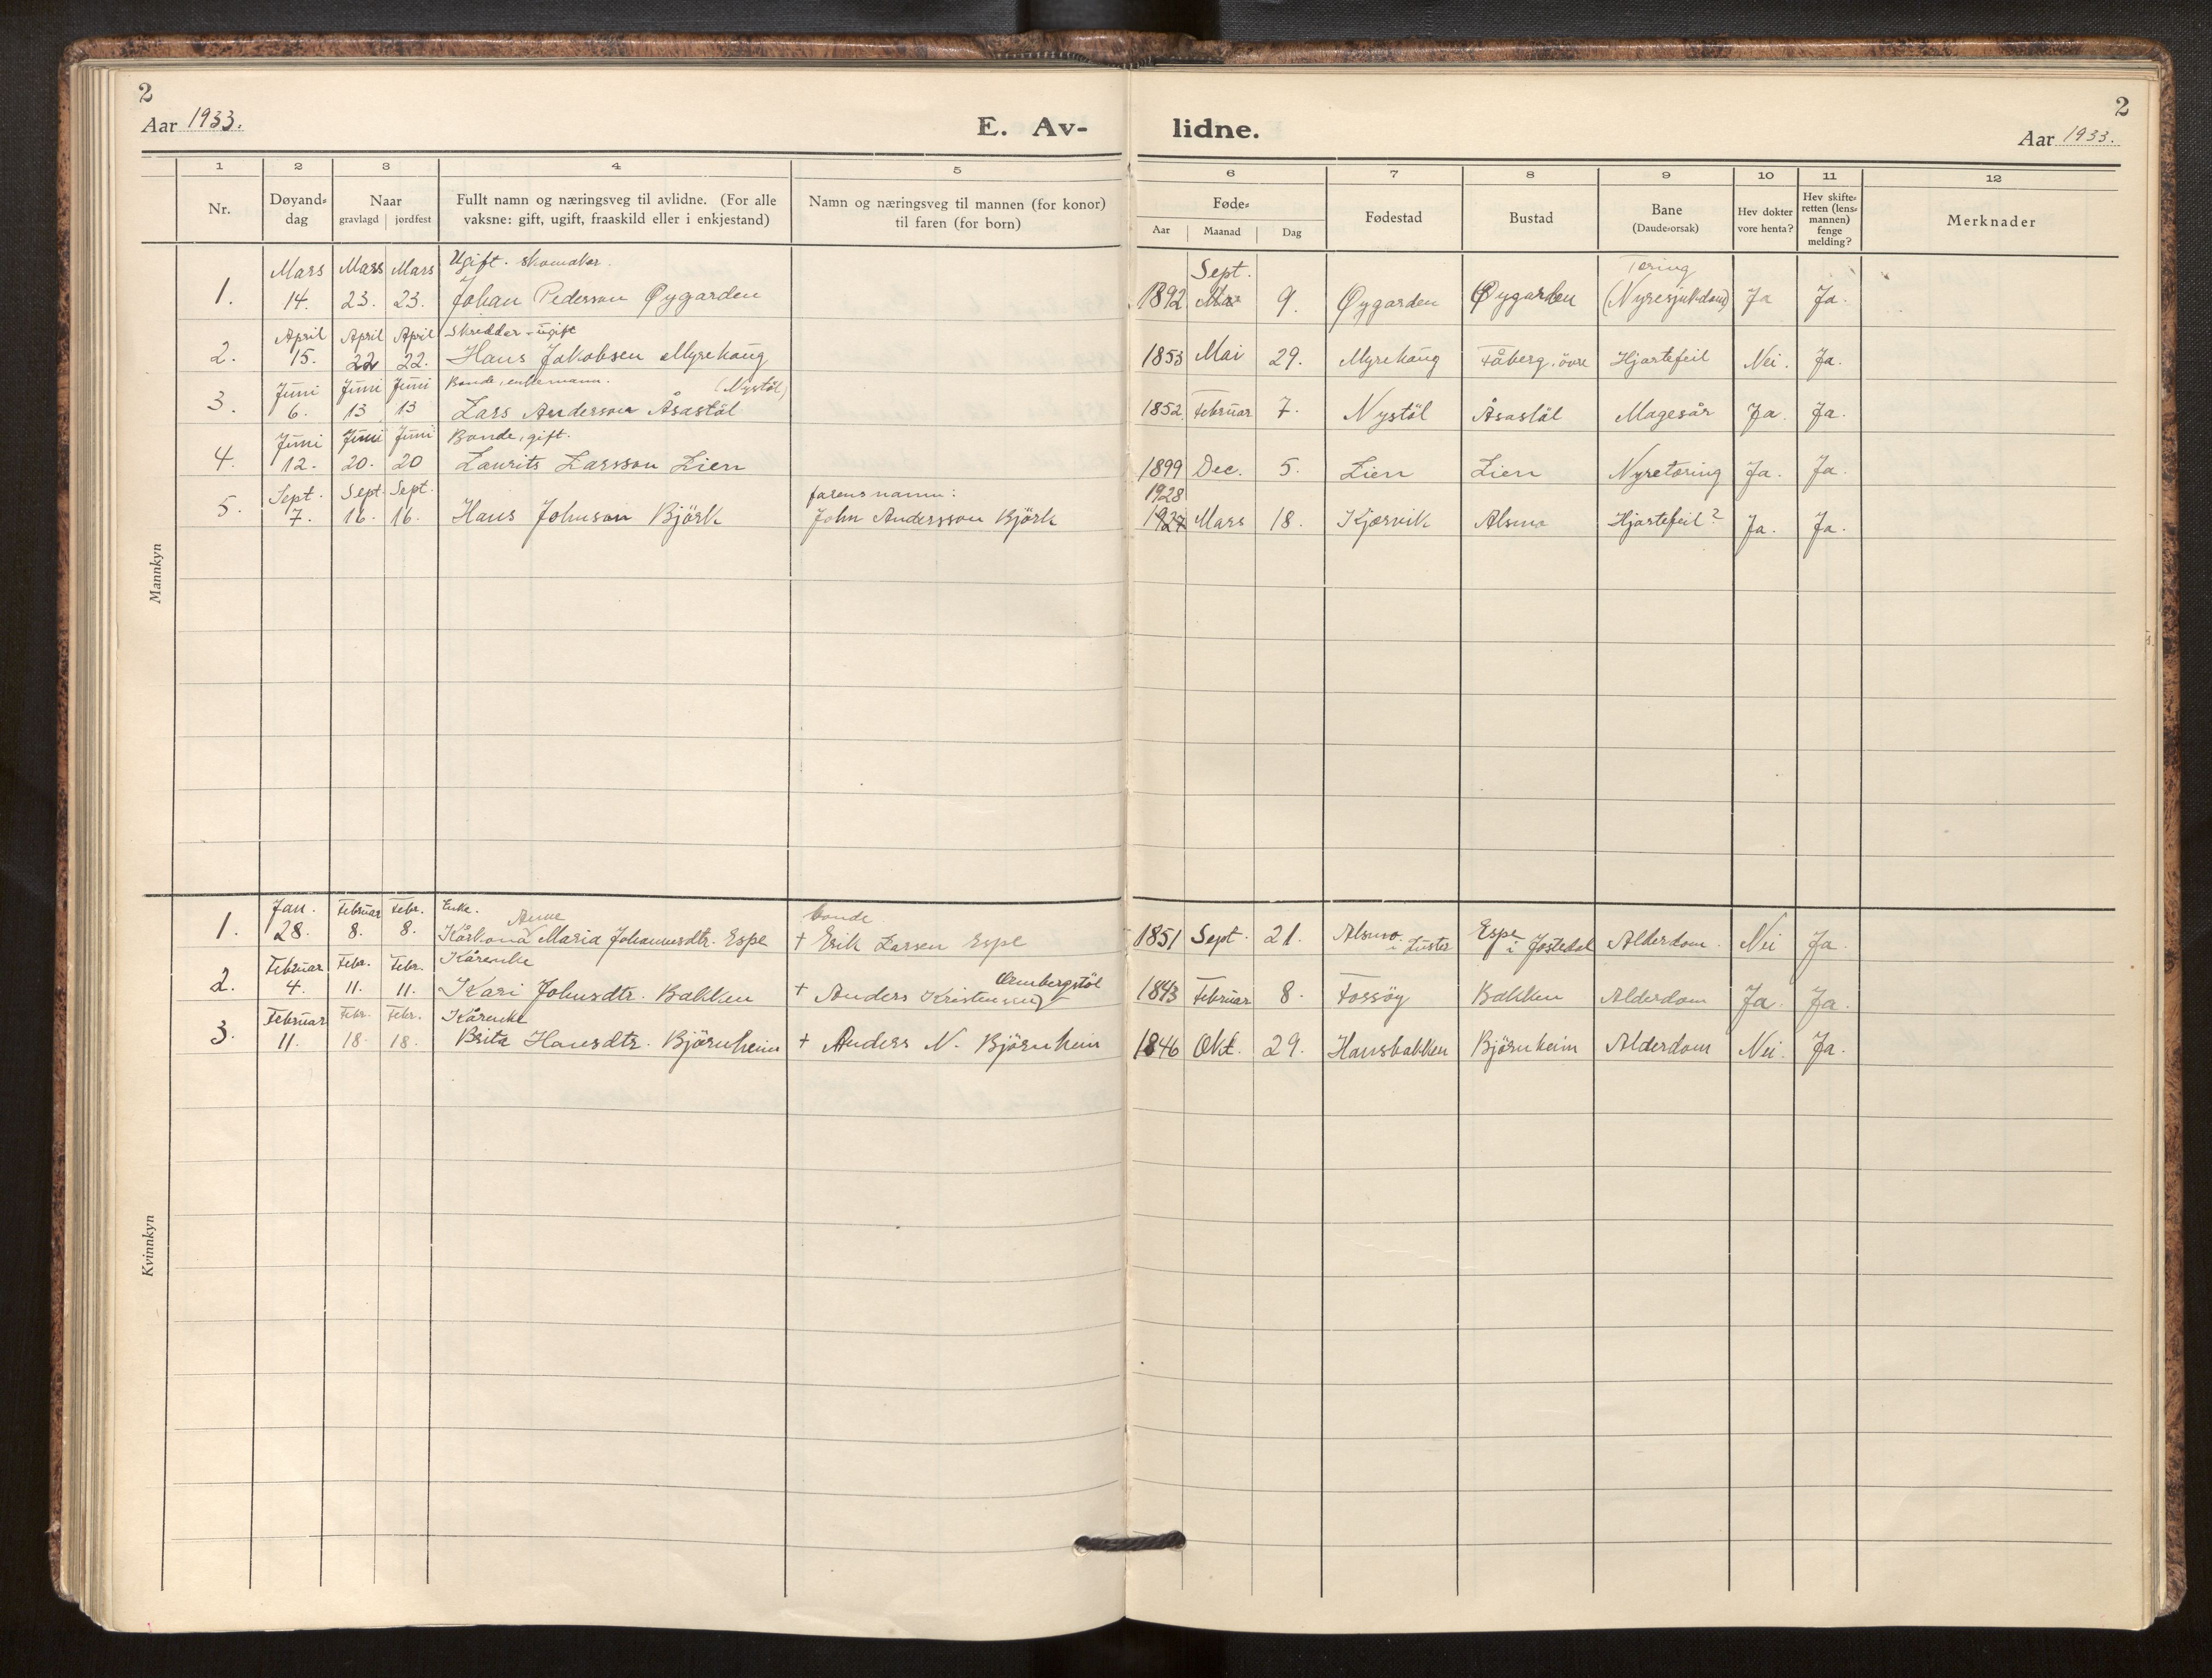 2
Aar 1933.
E. Av-
lidne.
2
Aar 1933.
1 2 3 4 5 6 7 8 9 10 11 12
Nr.
Døyand-
dag
Naar
gravlagd jordfest
Fullt namn og næringsveg til avlidne. (For alle
vaksne: gift, ugift, fraaskild eller i enkjestand)
Namn og næringsveg til mannen (for konor)
til faren (for born)
Føde-
Aar Maanad Dag
Fødestad
Bustad
Bane
(Daude-orsak)
Hev dokter
vore henta?
Hev skifte-
retten (lens-
mannen)
fenge
melding?
Merknader
Mannkyn
Mars Mars Mars Ugift. skomakar. Sept. Tæring
1. 14. 23. 23. Johan Pedersson Øygarden 1892 9. Øygarden Øygarden (Nyresjukdom) Ja Ja.
April April April Skredder - ugift
2. 15. 22 22. Hans Jakobsen Myrehaug 1853 Mai 29. Myrehaug Fåberg, övre Hjartefeil Nei. Ja.
Juni Juni Juni Bonde, enkemann. (Nystöl)
3. 6. 13 13 Lars Andersson Åsastöl 1852. Februar 7. Nystöl Åsastöl Magesår Ja. Ja.
Juni Juni Juni Bonde, gift.
4. 12. 20. 20 Laurits Larsson Lien 1899 Dec. 5. Lien Lien Nyretæring Ja. Ja.
Sept. Sept. Sept. farens namn: 1928
5. 7. 16. 16. Hans Johnson Björk John Andersson Björk 1927 Mars 18. Kjærvik Alsmo Hjartefeil? Ja. Ja.
Kvinnkyn
Jan. Februar Febr. Enke. Anne bonde
1. 28. 8. 8. Kårkona Maria Johannesdtr. Espe † Erik Larsen Espe 1851 Sept. 21. Alsmo i Luster Espe i Jostedal Alderdom. Nei Ja.
Februar Febr. Febr. Kårenke Ormbergstöl
2. 4. 11. 11. Kari Johnsdtr. Bakken † Anders Kristensen 1843 Februar 8. Fossöy Bakken Alderdom Ja. Ja.
Februar Febr. Febr. Kårenke
3. 11. 18. 18. Brita Hansdtr. Björnheim † Anders N. Björnheim 1846 Okt. 29. Hansbakken Björnheim Alderdom Nei. Ja.